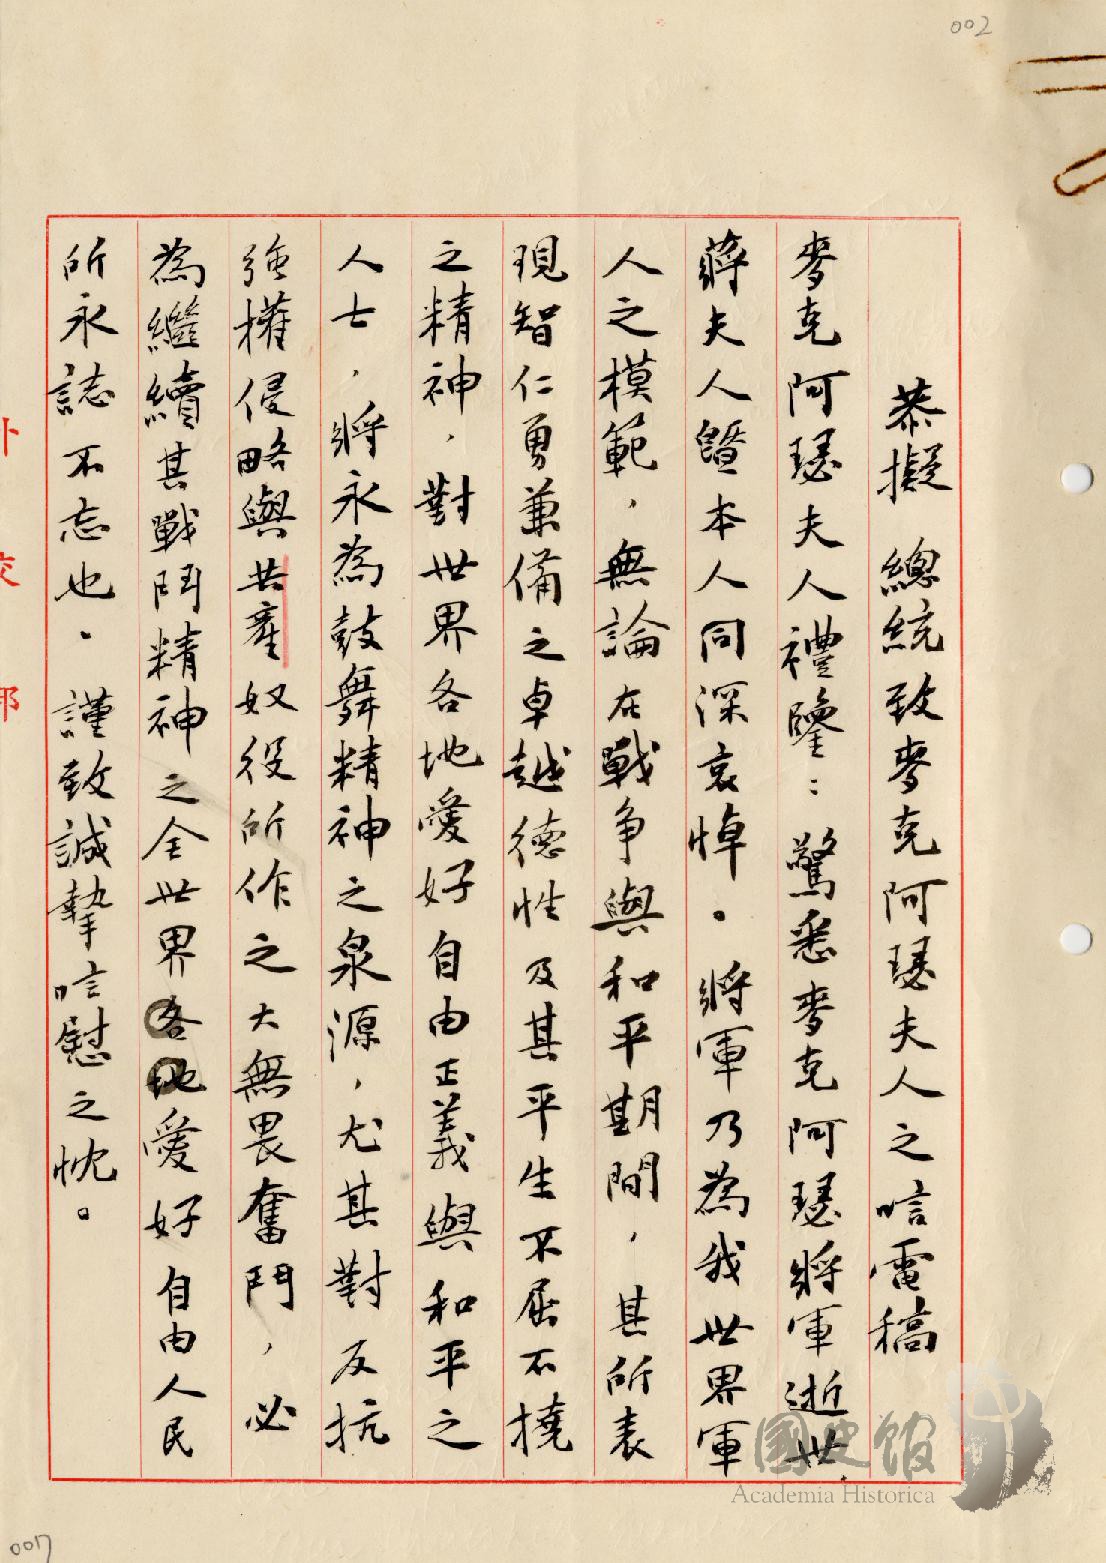 002
恭擬 總統致麥克阿瑟夫人之唁電稿
麥克阿瑟夫人禮鑒：驚悉麥克阿瑟將軍逝世，
蔣夫人暨本人同深哀悼。將軍乃為我世界軍
人之模範，無論在戰爭與和平期間，其所表
現智仁勇兼備之卓越德性及其平生不屈不撓
之精神，對世界各地愛好自由正義與和平之
人士，將永為鼓舞精神之泉源，尤其對反抗
強權侵略與共產奴役所作之大無畏奮鬥，必
為繼續其戰鬥精神之全世界各地愛好自由人民
所永誌不忘也。謹致誠摯唁慰之忱。
外交部
007
國史館
Academia Historica